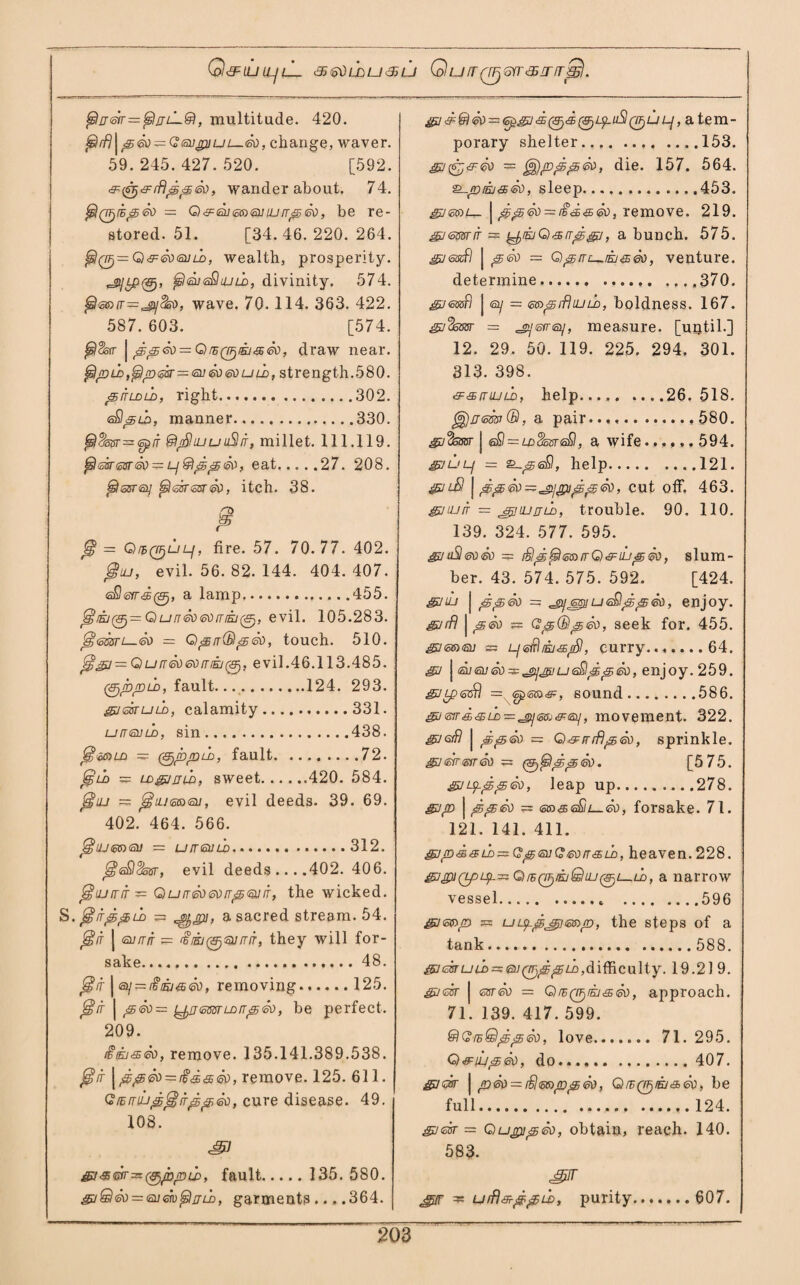 செய்யுட் கலம்பகப் பொருளகராதி.
திரள்=திரட்சி, multitude. 420.
திரி | தல்=வேறுபடல், change, waver.
59. 245. 427. 520. [592.
சஞ்சரித்தல், wander about. 74.
திருந்தல் = செவ்வையாதல், be re-
stored. 51. [34. 46. 220. 264.
திரு=செல்வம், wealth, prosperity.
அழகு, திவ்வியம், divinity. 574.
திரை=அலை, wave. 70. 114. 363. 422.
587. 603. [574.
திளை | த்தல்=நெருங்கல், draw near.
திறம்,திறன்=வல்லபம், strength.580.
தாமம், right...............302.
விதம், manner...............330.
திணை=ஓர் சிறுபயிர், millet. 111.119.
தின்னல்=புசித்தல், eat.....27. 208.
தினவு தின்னல், itch. 38.
தீ
தீ = நெருப்பு, fire. 57. 70. 77. 402.
தீய, evil. 56. 82. 144. 404. 407.
விளக்கு, a lamp............455.
தீங்கு=பொல்லாங்கு, evil. 105.283.
தீண்டல் = தொடுதல், touch. 510.
தீது=பொல்லாங்கு, evil.46.113.485.
குற்றம், fault............124. 293.
துன்பம், calamity..........331.
பாவம், sin................438.
தீமை = குற்றம், fault. .........72.
தீம் = மதுரம், sweet.......420. 584.
தீய = தீயவை, evil deeds. 39. 69.
402. 464. 566.
தீயவை = பாவம்.............312.
தீவினை, evil deeds....402. 406.
தீயார் = பொல்லாதவர், the wicked.
S. தீர்த்தம் = ஆறு, a sacred stream. 54.
தீர் | வார் = நீங்குவார், they will for-
sake........................ 48.
தீர் | வு=நீங்கல், removing...... 125.
தீர் | தல்= பூரணமாதல், be perfect.
209.
நீங்கல், remove. 135.141.389.538.
தீர் | த்தல்=நீக்கல், remove. 125. 611.
நோய்தீர்த்தல், cure disease. 49.
108.
து
துகள்=குற்றம், fault..... 135. 580.
துகில்=வஸ்திரம், garments....364.
துச்சில்=ஒதுக்குக்குடியிருப்பு, a tem-
porary shelter............153.
துஞ்சல் = இறத்தல், die. 157. 564.
உறங்கல், sleep..............453.
துடை | த்தல்=நீக்கல், remove. 219.
துணர் = பூங்கொத்து, a bunch. 575.
துணி | தல் = தொடங்கல், venture.
determine...................370.
துணி | வு = தைரியம், boldness. 167.
துணை = அளவு, measure. [until.]
12. 29. 50. 119. 225. 294. 301.
313. 398.
சகாயம், help.........26. 518.
இரண்டு, a pair............580.
துணை | வி=மனைவி, a wife......594.
துப்பு = உதவி, help..........121.
துமி | த்தல்=அறுத்தல், cut off. 463.
துயர் = துயரம், trouble. 90. 110.
139. 324. 577. 595.
துயிலல் = நித்திரைசெய்தல், slum-
ber. 43. 574. 575. 592. [424.
துய் | த்தல் = அனுபவித்தல், enjoy.
துரி | தல் = தேடுதல், seek for. 455.
துவை = புளிங்கறி, curry.......64.
து | வ்வல்=அனுபவித்தல், enjoy. 259.
துழனி = ஓசை, sound.........586.
துளக்கம்=அசைவு, movement. 322.
துளி | த்தல் = சொரிதல், sprinkle.
துள்ளல் = குதித்தல். [575.
துடித்தல், leap up..........278.
துற | த்தல் = கைவிடல், forsake. 71.
121. 141. 411.
துறக்கம்=தேவலோகம், heaven.228.
துறுமுடி=நெருங்கியகுடம், a narrow
vessel............... ........596
துறை = படித்துறை, the steps of a
tank..........................588.
துன்பம்=வருத்தம்,difficulty. 19.219.
துன் | னல் = நெருங்கல், approach.
71. 139. 417. 599.
சிநேகித்தல், love....... 71. 295.
செய்தல், do.................. 407.
துன் | றல்=நிறைதல், நெருங்கல், be
full.........................124.
துன் = பெறுதல், obtain, reach. 140.
583.
தூ
தூ = பரிசுத்தம், purity.......607.
203